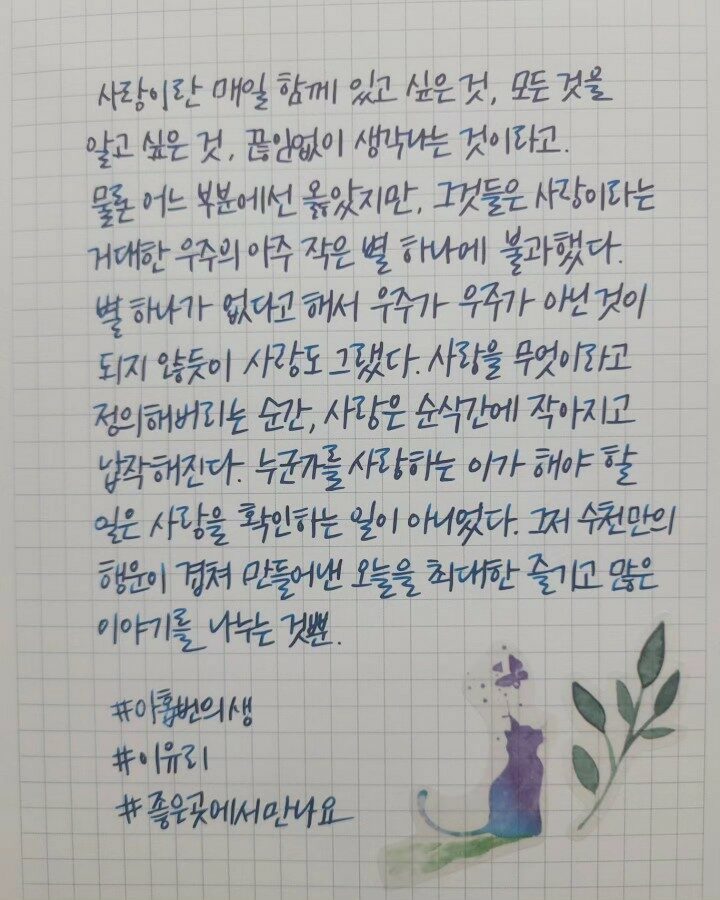 사랑이란 매일 함께 있고 싶은 것, 모든 것을
알고 싶은 것, 끊임없이 생각나는 것이라고.
물론 어느 부분에선 옳았지만, 그것들은 사랑이라는
거대한 우주의 아주 작은 별 하나에 불과했다.
별 하나가 없다고 해서 우주가 우주가 아닌 것이
되지 않듯이 사랑도 그랬다. 사랑을 무엇이라고
정의해버리는 순간, 사랑은 순식간에 작아지고
납작해진다. 누군가를 사랑하는 이가 해야 할
일은 사랑을 확인하는 일이 아니었다. 그저 수천만의
행운이 겹쳐 만들어낸 오늘을 최대한 즐기고 많은
이야기를 나누는 것뿐.
#아홉번의생
#이유리
#좋은곳에서만나요